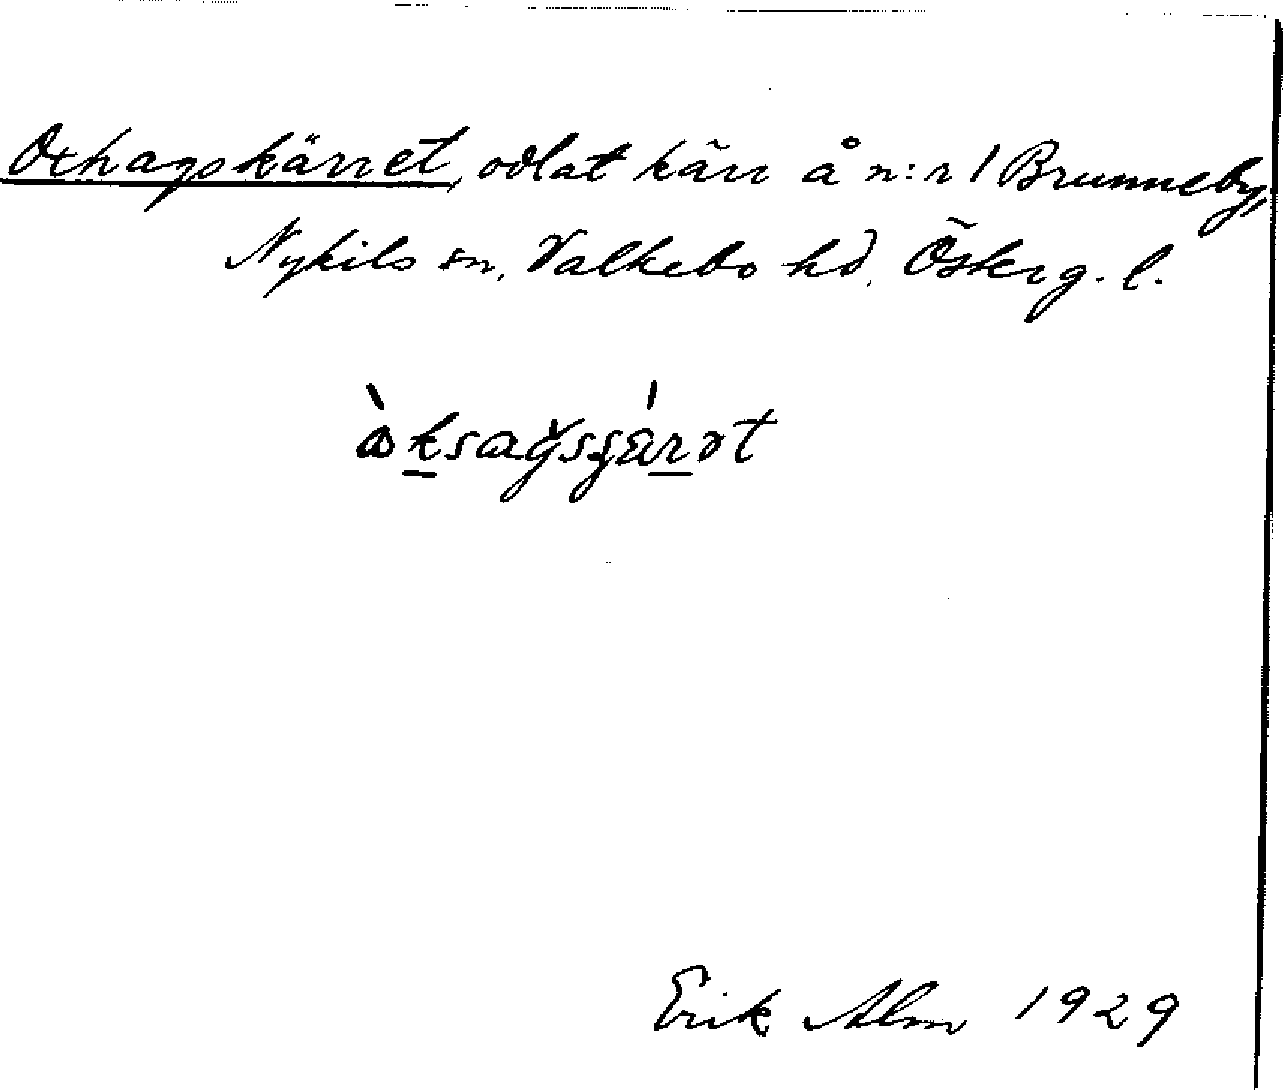 Oxhagskärret, odlat kärr å n:r 1 Brunneby,
Nykils sn, Valkebo hd, Österg. l.
Erik Alm 1929